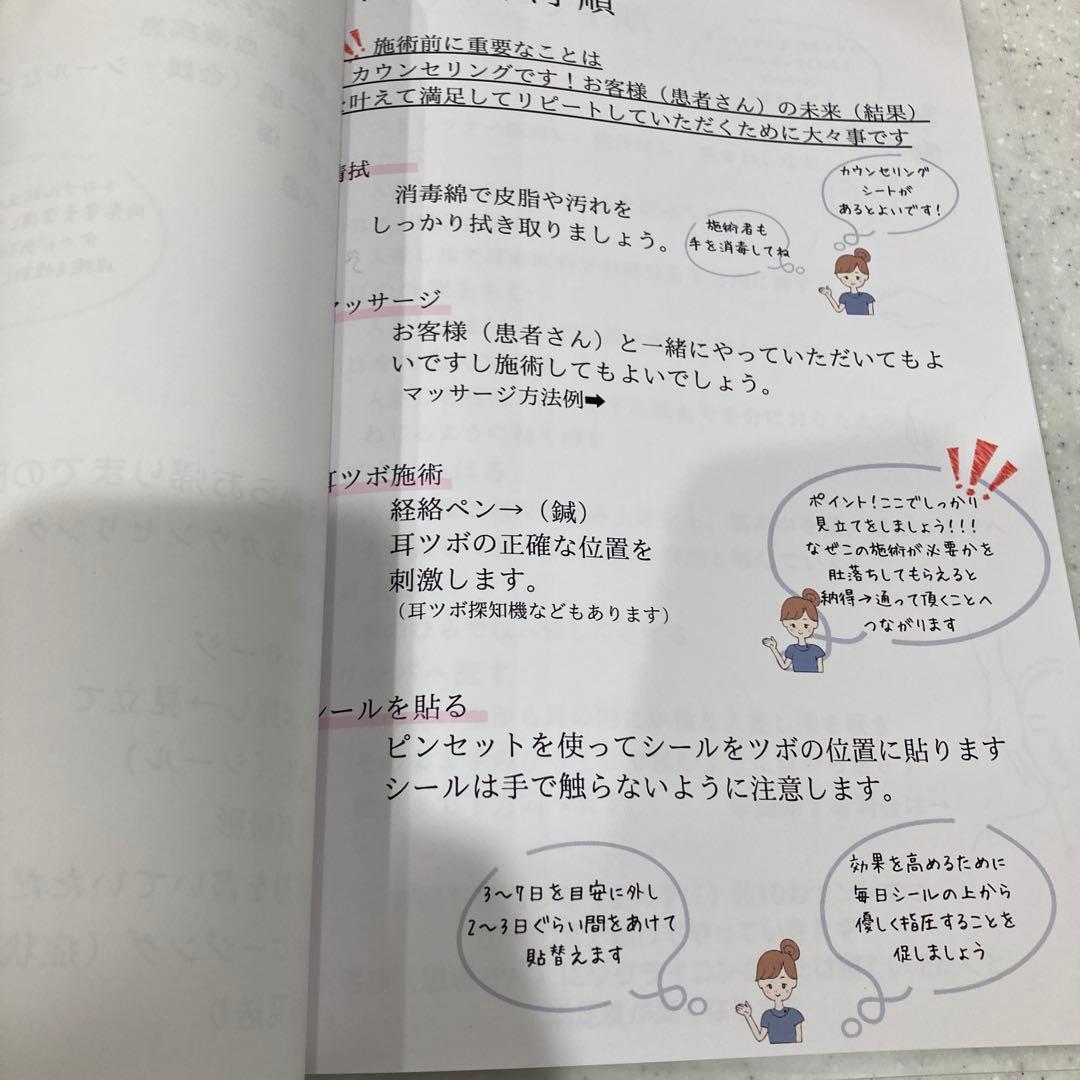 順
施術前に重要なことは
カウンセリングです！お客様（患者さん）の未来（結果）
を叶えて満足してリピートしていただくために大々事です
清拭
消毒綿で皮脂や汚れを
しっかり拭き取りましょう。
カウンセリング
シートが
あるとよいです！
施術者も
手を消毒してね
マッサージ
お客様（患者さん）と一緒にやっていただいてもよ
いですし施術してもよいでしょう。
マッサージ方法例➡
耳ツボ施術
経絡ペン→（鍼）
耳ツボの正確な位置を
刺激します。
（耳ツボ探知機などもあります）
ポイント！ここでしっかり
見立てをしましょう！！！
なぜこの施術が必要かを
肚落ちしてもらえると
納得→通って頂くことへ
つながります
シールを貼る
ピンセットを使ってシールをツボの位置に貼ります
シールは手で触らないように注意します。
3〜7日を目安に外し
2〜3日ぐらい間をあけて
貼替えます
効果を高めるために
毎日シールの上から
優しく指圧することを
促しましょう